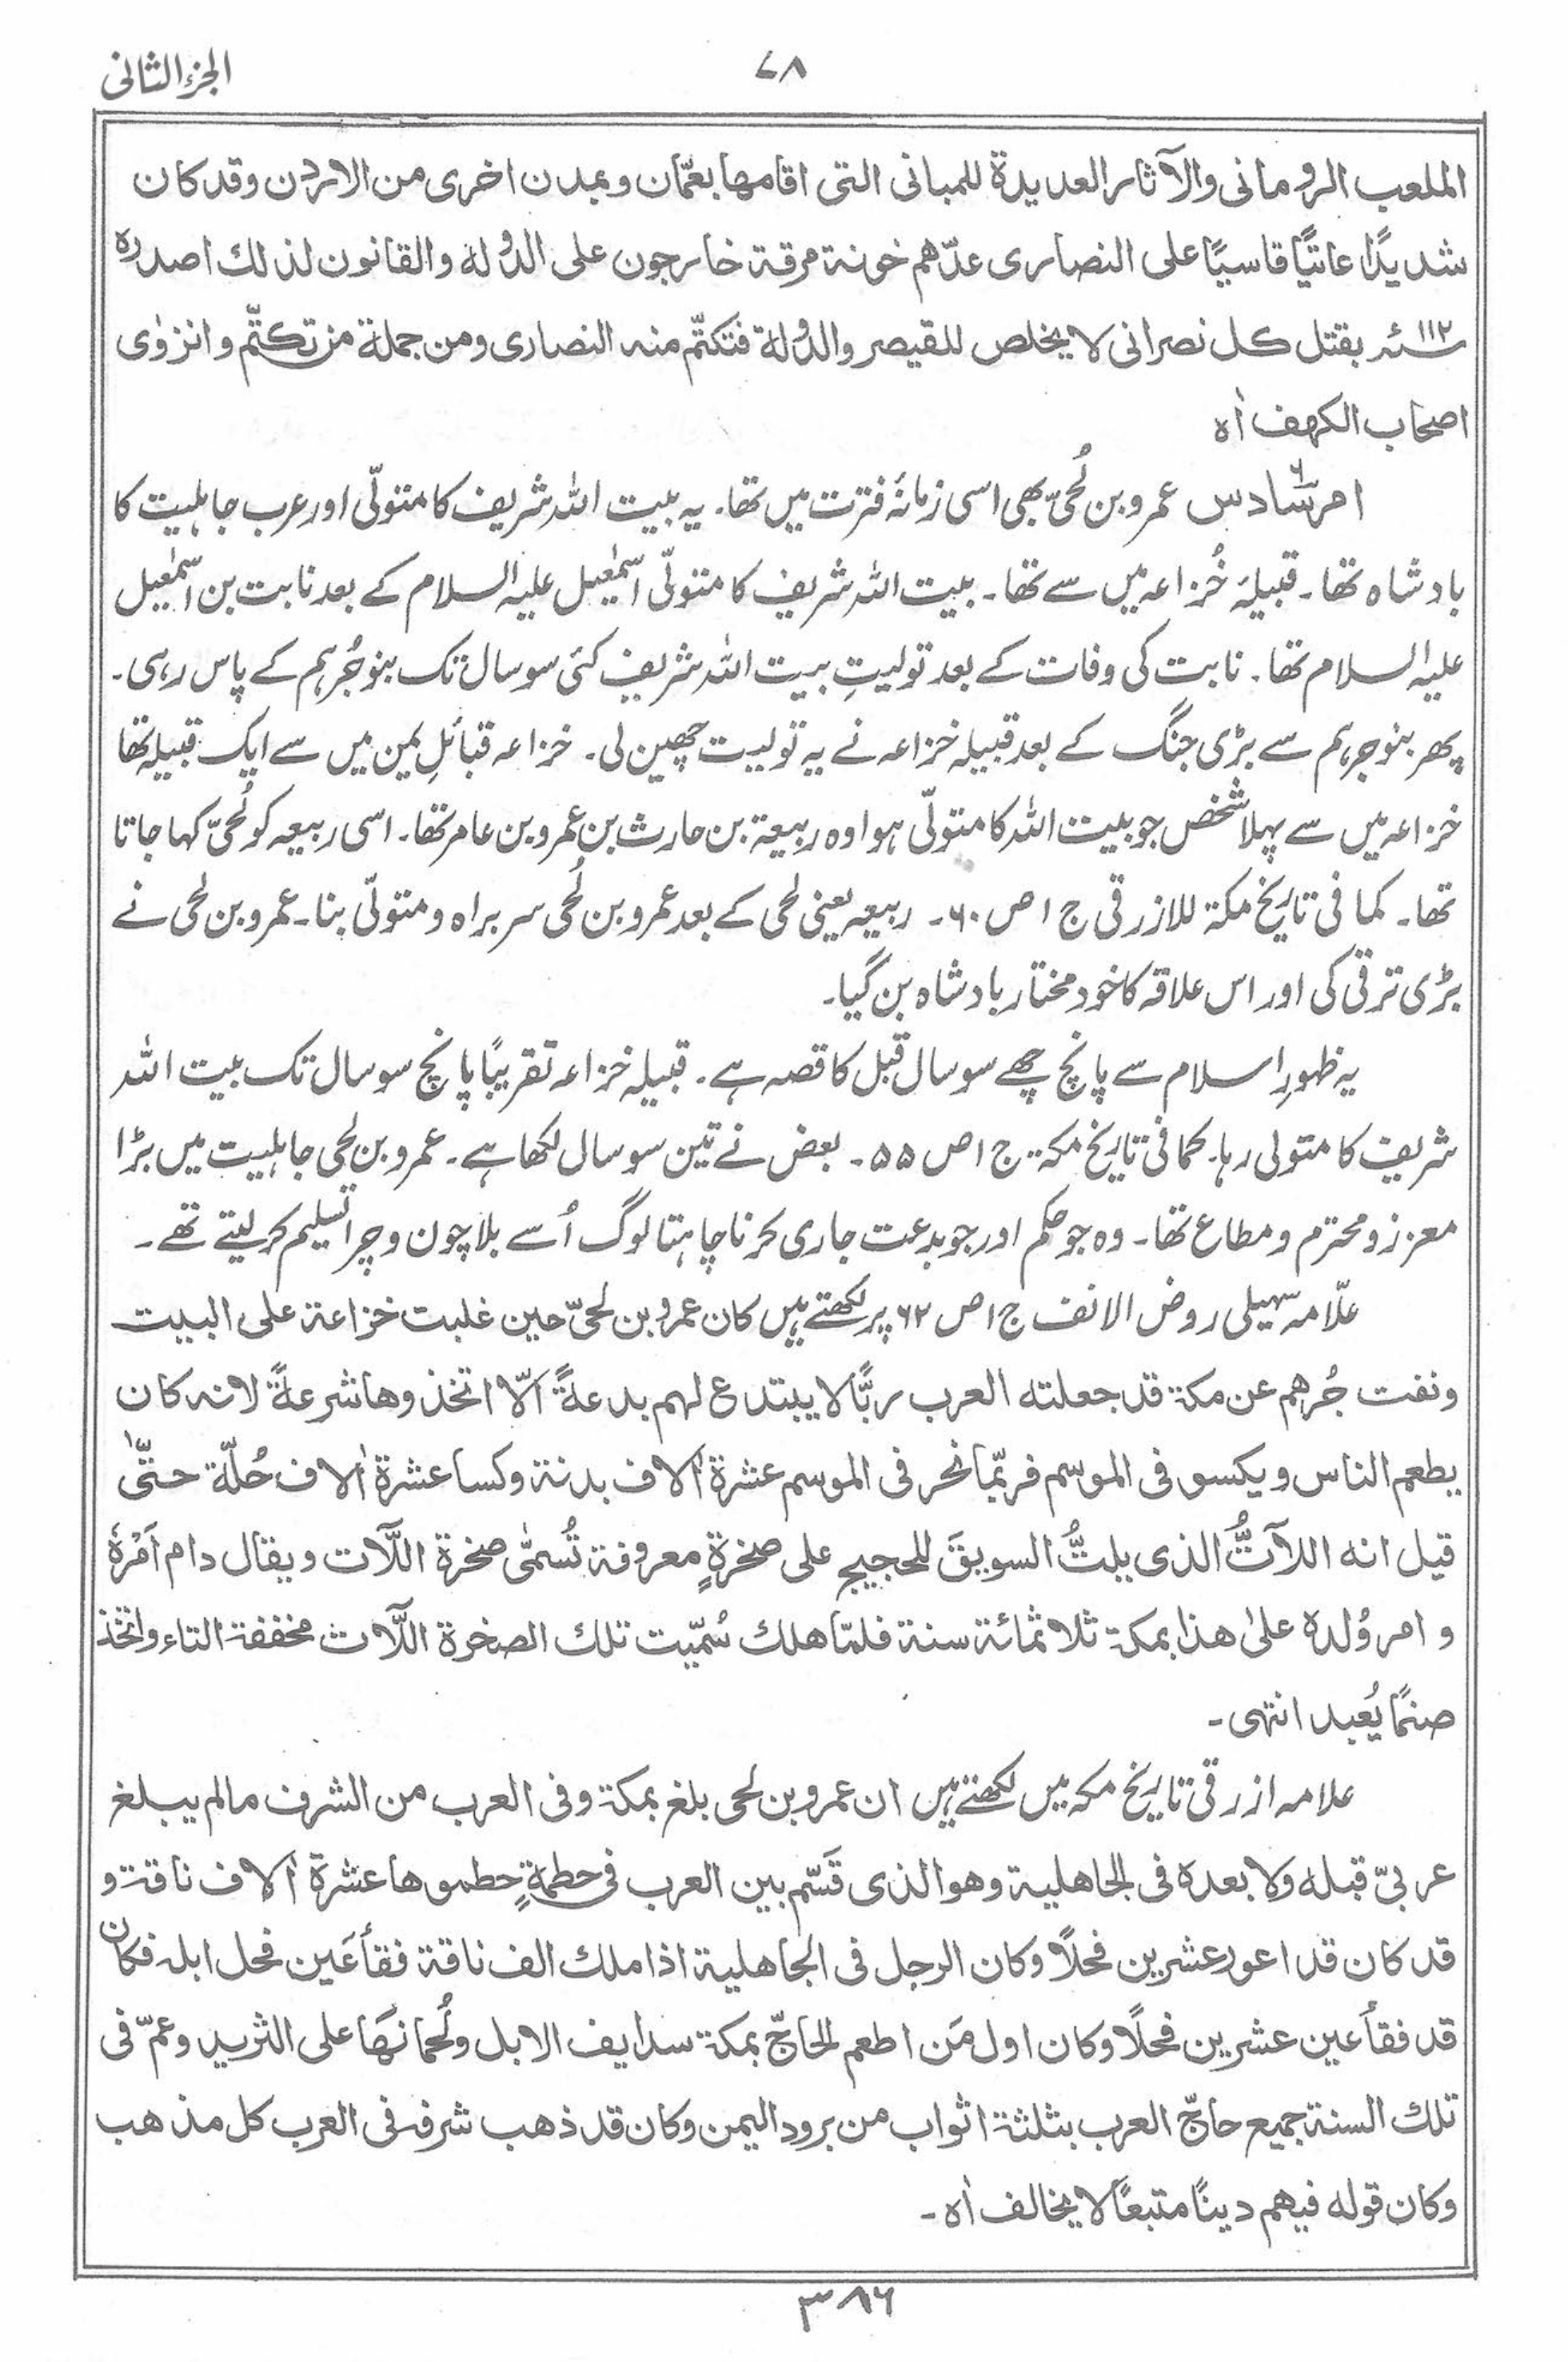 الجزء الثانی
۷۸
الملعب الرومانی والآثار العدیدۃ للمبانی التی اقامھا بعمّان وبمدن اخری من الاردن وقد کان
شدیدًا عاتیًا قاسیًا علی النصاری عدّھم خونۃ مرقۃ خارجون علی الدولہ والقانون لذلك اصدرہ
۱۱۲ سنہ بقتل کل نصرانی لا یخلص للقیصر والدولۃ فتکتّم منہ النصاری ومن جملۃ من تکتّم وانزوٰی
اصحاب الکھف اٰہ
امر سادس ۶ عمرو بن لُحیّ بھی اسی زمانۂ فترت میں تھا۔ یہ بیت اللہ شریف کا متولّی اور عرب جاہلیت کا
بادشاہ تھا۔ قبیلۂ خُزاعہ میں سے تھا۔ بیت اللہ شریف کا متولّی اسمٰعیل علیہ السلام کے بعد نابت بن اسمٰعیل
علیہ السلام تھا۔ نابت کی وفات کے بعد تولیتِ بیت اللہ شریف کئی سو سال تک بنو جُرہم کے پاس رہی۔
پھر بنو جرہم سے بڑی جنگ کے بعد قبیلہ خزاعہ نے یہ تولیت چھین لی۔ خزاعہ قبائلِ یمن میں سے ایک قبیلہ تھا
خزاعہ میں سے پہلا شخص جو بیت اللہ کا متولّی ہوا وہ ربیعۃ بن حارث بن عمرو بن عامر تھا۔ اسی ربیعہ کو لُحَیّ کہا جاتا
تھا۔ کما فی تاریخ مکۃ للازرقی ج ۱ ص ۶۰۔ ربیعہ یعنی لحی کے بعد عمرو بن لُحی سربراہ و متولّی بنا۔ عمرو بن لحی نے
بڑی ترقی کی اور اس علاقہ کا خود مختار بادشاہ بن گیا۔
یہ ظہورِ اسلام سے پانچ چھے سو سال قبل کا قصہ ہے۔ قبیلہ خزاعہ تقریبًا پانچ سو سال تک بیت اللہ
شریف کا متولی رہا۔ کما فی تاریخ مکۃ ج ۱ ص ۵۵۔ بعض نے تین سو سال لکھا ہے۔ عمرو بن لحی جاہلیت میں بڑا
معزز و محترم و مطاع تھا۔ وہ جو حکم اور جو بدعت جاری کرنا چاہتا لوگ اُسے بلا چون و چرا تسلیم کر لیتے تھے۔
علّامہ سہیلی روض الانف ج ۱ ص ۶۲ پر لکھتے ہیں کان عمرو بن لحیّ حین غلبت خزاعۃ علی البیت
ونفت جُرھم عن مکۃ قد جعلتہ العرب ربًّا لا یبتدع لھم بدعۃً الّا اتخذوھا شرعۃً لانہ کان
یطعم الناس ویکسو فی الموسم فربّما نحر فی الموسم عشرۃ اٰلاف بدنۃ وکسا عشرۃ اٰلاف حُلّۃ حتّٰی
قیل انہ اللاتُّ الذی یلتُّ السویقَ للحجیج علی صخرۃٍ معروفۃ تُسمّٰی صخرۃ اللّات ویقال دام اَمْرُہٗ
وامر وُلدہ علیٰ ھذا بمکۃ ثلاثمائۃ سنۃ فلمّا ھلك سُمّیت تلك الصخرۃ اللّات مخففۃ التاء واتُّخذ
صنمًا یُعبد انتہی۔
علامہ ازرقی تاریخ مکہ میں لکھتے ہیں ان عمرو بن لحی بلغ بمکۃ وفی العرب من الشرف مالم یبلغ
عربیّ قبلہ ولا بعدہ فی الجاھلیۃ وھو الذی قَسَّم بین العرب فی حطمۃٍ حطموھا عشرۃ اٰلاف ناقۃ و
قد کان قد اعور عشرین فحلًا وکان الرجل فی الجاھلیۃ اذا ملك الف ناقۃ فقأ عَین فحل ابلہ فکان
قد فقأ عین عشرین فحلًا وکان اول مَن اطعم الحاجّ بمکۃ سدایف الابل ولُحمانھَا علی الثرید وعمّ فی
تلك السنۃ جمیع حاجّ العرب بثلثۃ اثواب من برود الیمن وکان قد ذھب شرفہ فی العرب کل مذھب
وکان قولہ فیھم دینًا متبعًا لا یخالف اٰہ۔
۳۸۶